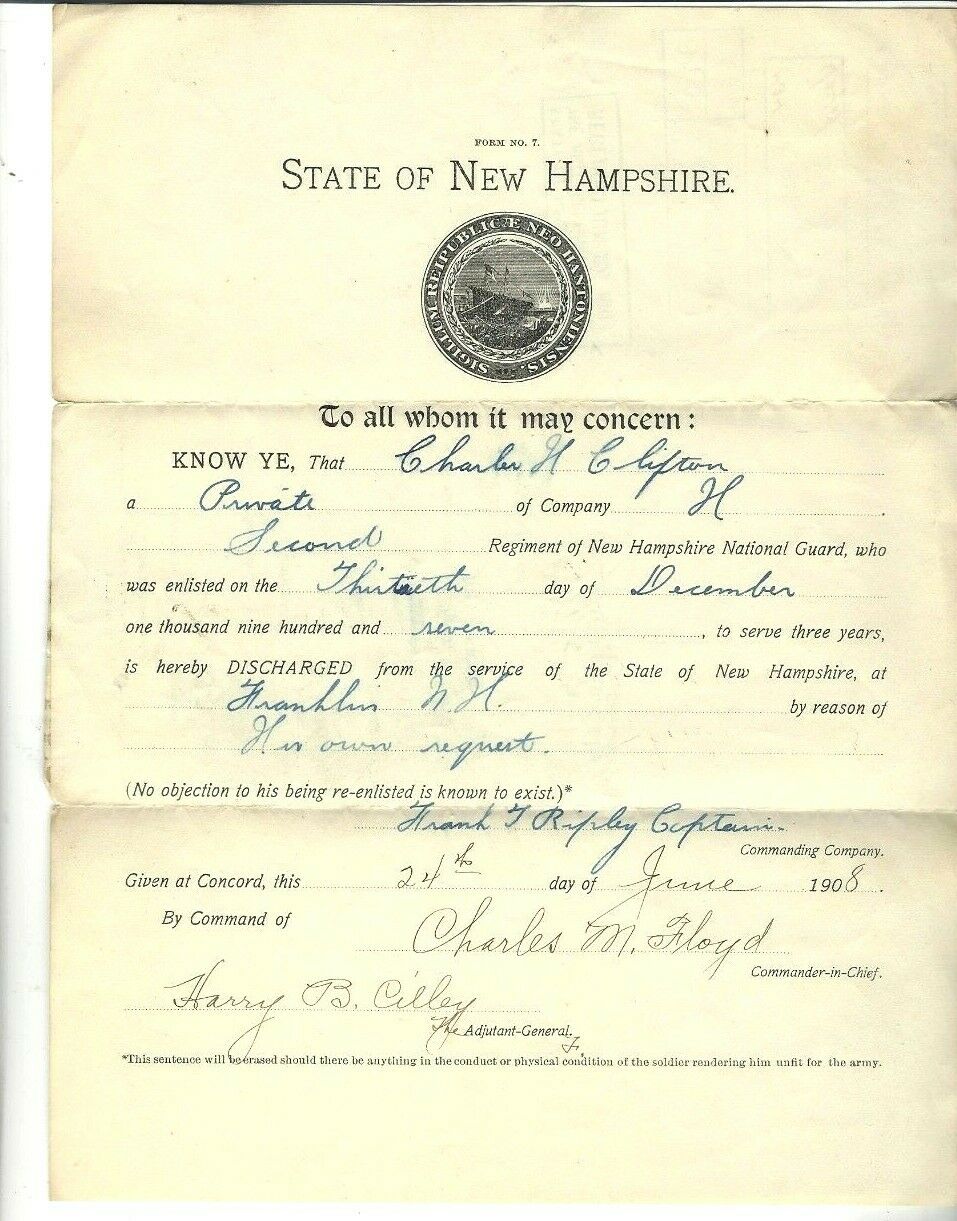 FORM NO. 7.
STATE OF NEW HAMPSHIRE.
SIGILLUM REIPUBLICÆ NEO HANTONIENSIS.
To all whom it may concern:
KNOW YE, That Charles H Clifton
a Private of Company H
Second Regiment of New Hampshire National Guard, who
was enlisted on the Thirtieth day of December
one thousand nine hundred and seven, to serve three years,
is hereby DISCHARGED from the service of the State of New Hampshire, at
Franklin N. H. by reason of
His own request.
(No objection to his being re-enlisted is known to exist.)*
Frank T Ripley Captain.
Commanding Company.
Given at Concord, this 24th day of June 1908.
By Command of
Charles M. Floyd
Commander-in-Chief.
Harry B. Cilley
The Adjutant-General.
*This sentence will be erased should there be anything in the conduct or physical condition of the soldier rendering him unfit for the army.